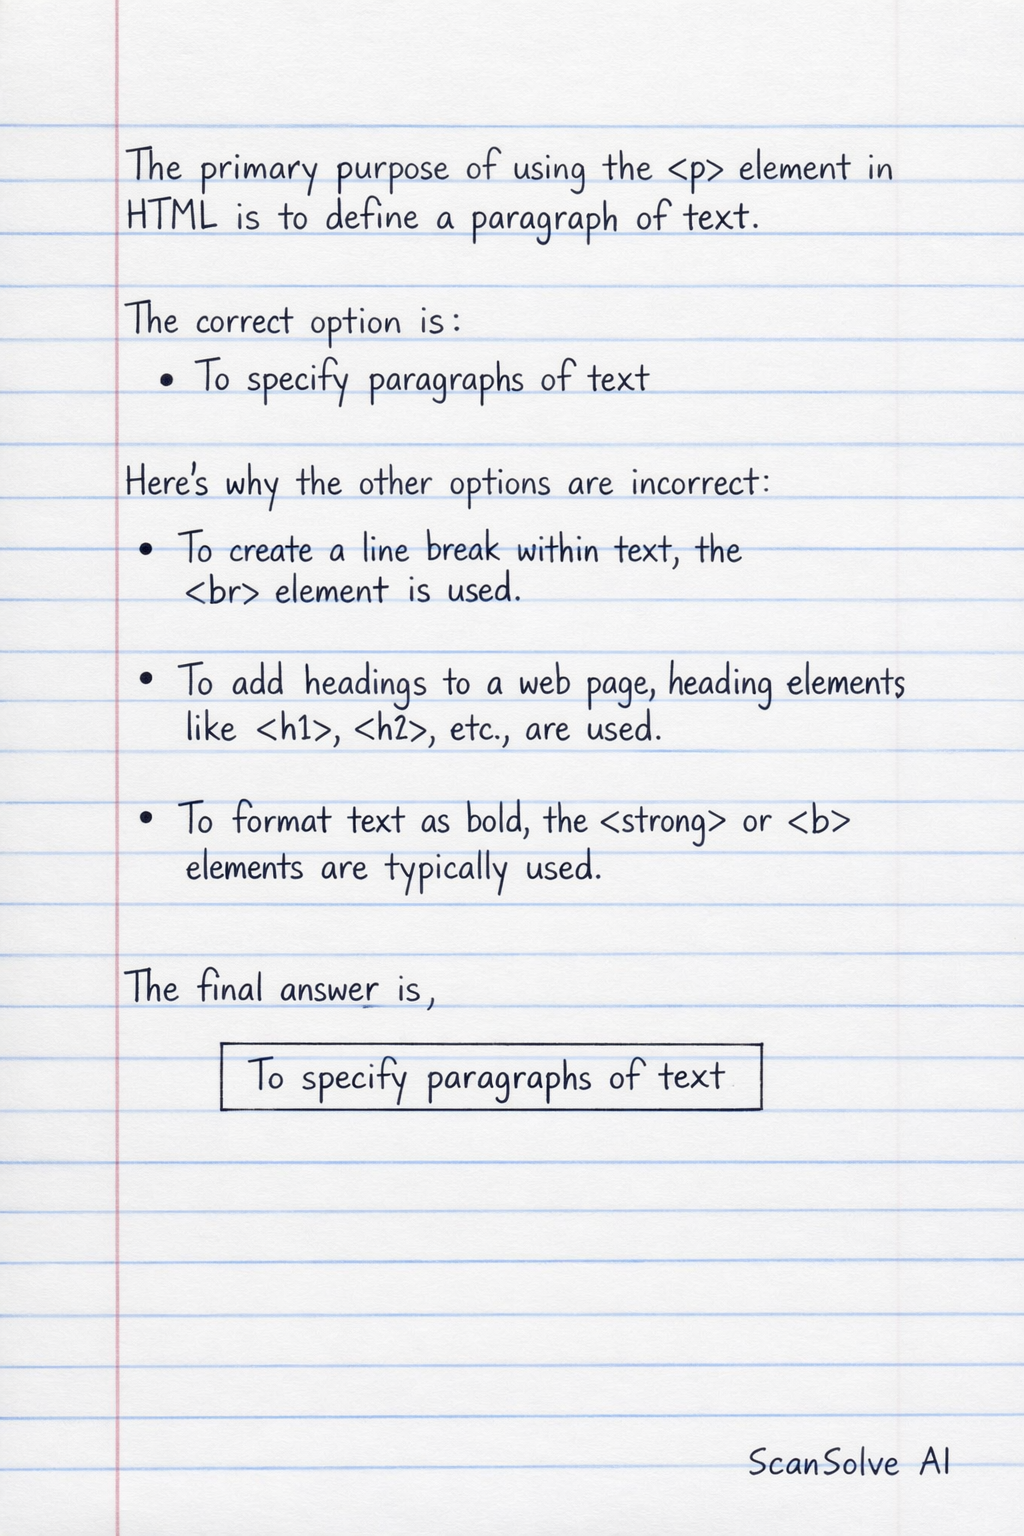 The primary purpose of using the <p> element in
HTML is to define a paragraph of text.
The correct option is:
• To specify paragraphs of text
Here's why the other options are incorrect:
• To create a line break within text, the
<br> element is used.
• To add headings to a web page, heading elements
like <h1>, <h2>, etc., are used.
• To format text as bold, the <strong> or <b>
elements are typically used.
The final answer is,
To specify paragraphs of text
ScanSolve AI